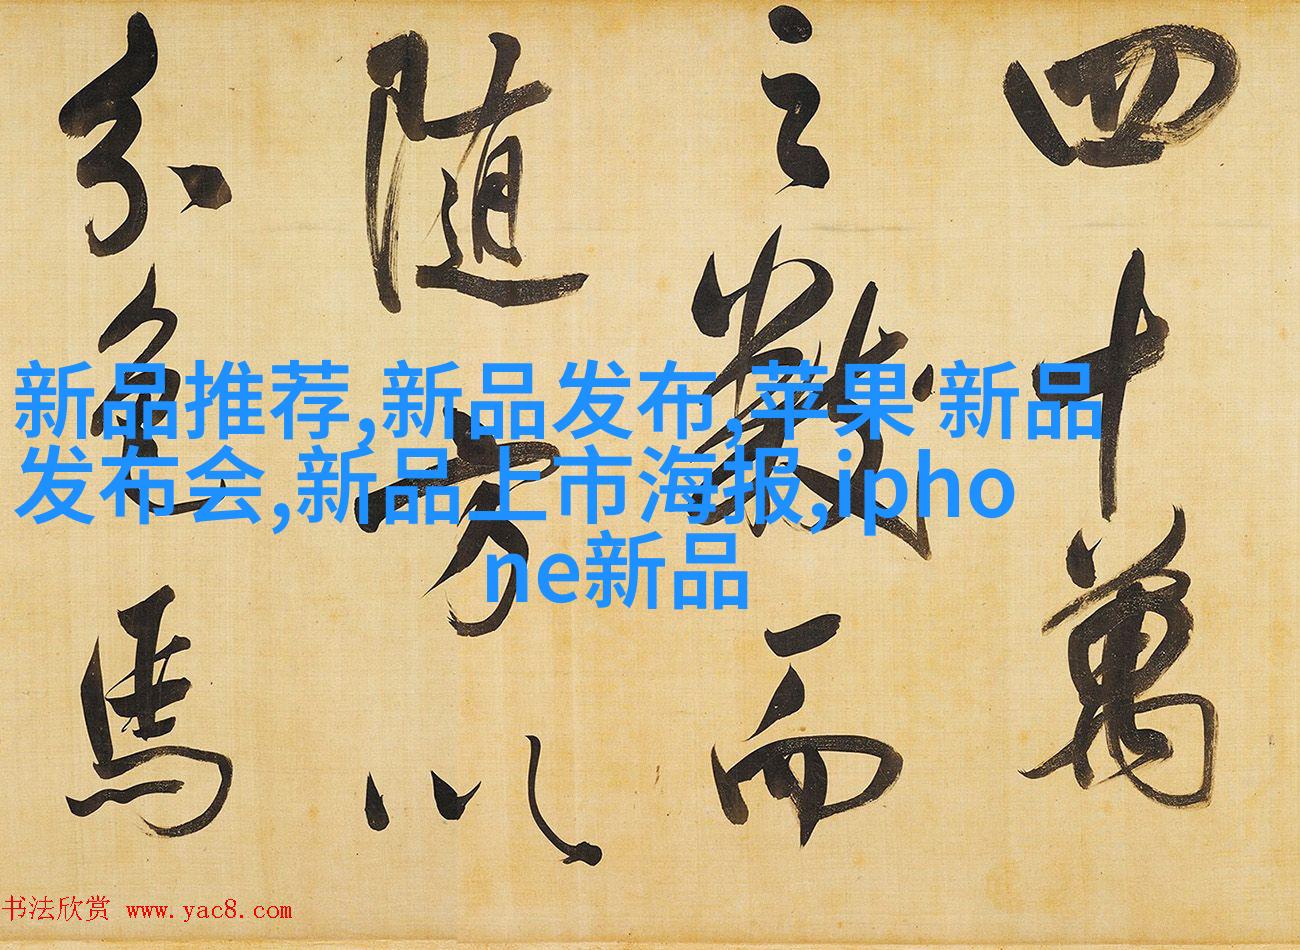 四十萬
之數而
随方以
分色馬
新品推荐,新品发布,苹果 新品
发布会,新品上市海报,ipho
ne新品
书法欣赏 www.yac8.com